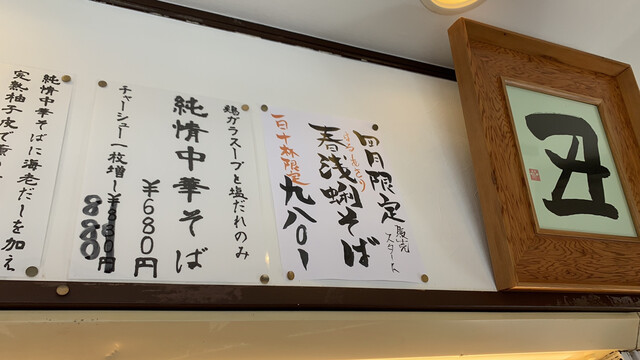 丑
四月限定
販売スタート
春浅蜊そば
百十杯限定
九八〇ー
鶏ガラスープと塩だれのみ
純情中華そば
¥680円
チャーシュー一枚増し¥830円
880
純情中華そばに海老だしを加え
完熟柚子皮で